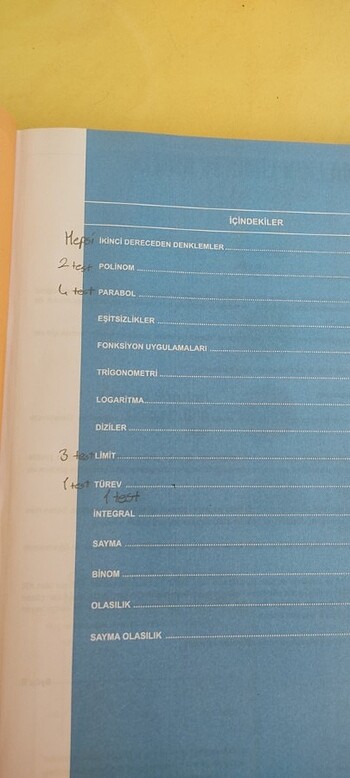 İÇİNDEKİLER
Hepsi İKİNCİ DERECEDEN DENKLEMLER
2 test POLİNOM
4 test PARABOL
EŞİTSİZLİKLER
FONKSİYON UYGULAMALARI
TRİGONOMETRİ
LOGARİTMA
DİZİLER
3 test LİMİT
1 test TÜREV
1 test
İNTEGRAL
SAYMA
BİNOM
OLASILIK
SAYMA OLASILIK